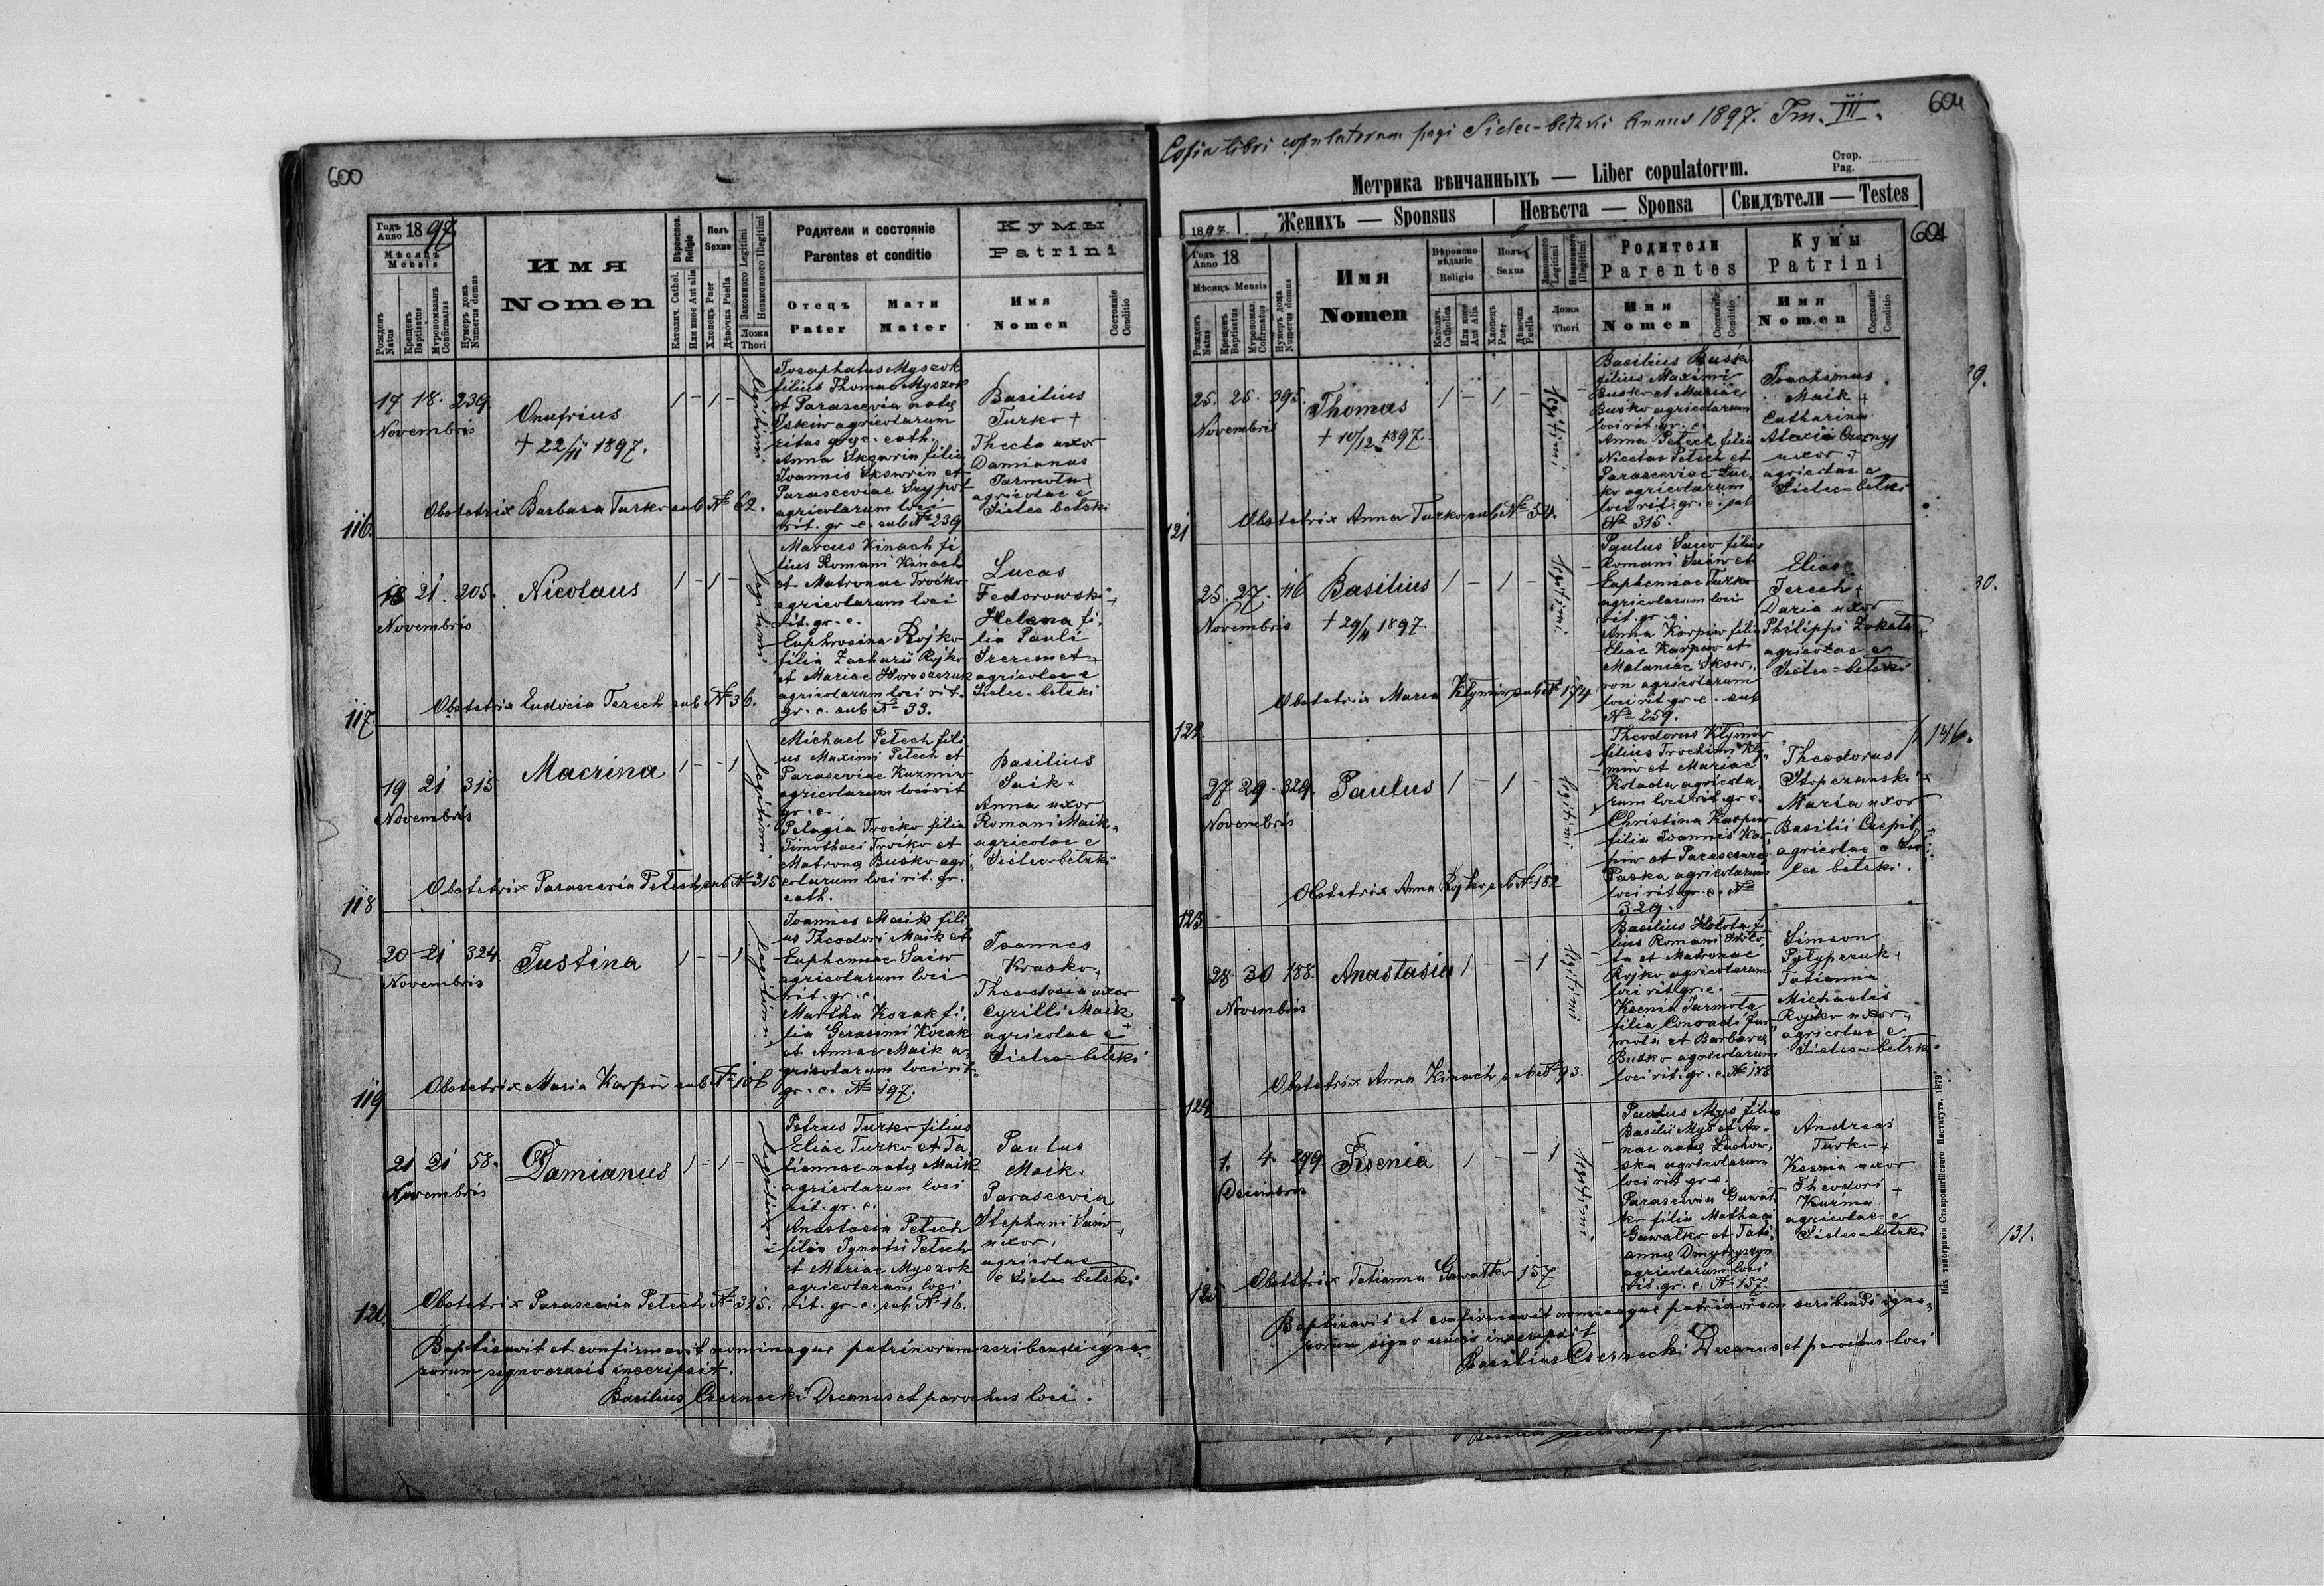 600
Годъ Anno 1897
Мѣсяцъ Mensis
Рожденъ Natus
Крещенъ Baptisatus
Мѵропомазанъ Confirmatus
Нумеръ дома Numerus domus
Имя
Nomen
Вѣроиспов. Religio
Католич. Cathol.
Или иное Aut alia
Полъ
Sexus
Хлопецъ Puer
Дѣвочка Puella
Законного Legitimi
Незаконного Illegitimi
Ложа
Thori
Родители и состояніе
Parentes et conditio
Отецъ
Pater
Мати
Mater
Кумы
Patrini
Имя
Nomen
Состояніе
Conditio
116.
17 18. 239.
Novembris
Onufrius
+ 22/11 1897.
1 – 1 –
legitimi
Josaphatus Myszok
filius Thomae Myszok
et Parascevia natę
Iskiw agricolarum
ritus gręc. cath.
Anna Skowrin filia
Joannis Skowrin et
Parasceviae Szypot
agricolarum loci
rit. gr. c. sub № 239
Basilius
Turko +
Thecla uxor
Damianus
Jarmola
agricolae e
Sielec betski
Obstetrix Barbara Turko sub № 62.
117.
18 21. 205.
Novembris
Nicolaus
1 – 1 –
legitimi
Marcus Kinach fi
lius Romani Kinach
et Matronae Troćko
agricolarum loci
rit. gr. c.
Euphrosina Rojko
filia Zacharii Rojko
et Mariae Horoszczuk
agricolarum loci rit.
gr. c. sub № 33.
Lucas
Fedorowski +
Helena fi,
lia Pauli
Szeremet +
agricolae e
Sielec-betzki
Obstetrix Eudocia Terech sub № 36.
118
19 21 315
Novembris
Macrina
1 – – 1
legitimi
Michael Petech fili
us Maximi Petech et
Parasceviae Kuzmiw
agricolarum loci rit
gr. c.
Pelagia Troćko filia
Timothaei Troćko et
Matronę Buśko agri,
colarum loci rit. gr.
cath.
Basilius
Saik +
Anna uxor
Romani Maik +
agricolae e
Sielec-betzki
Obstetrix Parascevia Petech sub № 315
119
20 21 324
Novembris
Justina
1 – – 1
legitimi
Joannes Maik fili
us Theodori Maik et
Euphemiae Saiw
agricolarum loci
rit. gr. c.
Martha Kozak fi,
lia Gerasimi Kozak
et Annae Maik a,
gricolarum loci rit.
gr. c. № 197.
Joannes
Krasko +
Theodosia uxor
Cyrilli Maik +
agricolae e
Sielec-betzki
Obstetrix Maria Karpiw sub № 106
120.
21 21 58.
Novembris
Damianus
1 – 1 –
legitimi
Petrus Turko filius
Eliae Turko et Ta
tiannae natę Maik
agricolarum loci
rit. gr. c.
Anastasia Petech
filia Ignatii Petech
et Mariae Myszok
agricolarum loci
rit. gr. c. sub № 16.
Paulus
Maik +
Parascevia
Stephani Saiw +
uxor,
agricolae
e Sielec betzki
Obstetrix Parascevia Petech № 315.
Baptisavit et confirmavit nominaque patrinorum scribendi igna,
rorum signo crucis inscripsit.
Basilius Czernecki Decanus et parochus loci.
Copia libri copulatorum pagi Sielec-betzki Annus 1897. Tm. III.
604
Метрика вѣнчанныхъ — Liber copulatorum.
Стор.
Pag.
1897.
Женихъ — Sponsus
Невѣста — Sponsa
Свидѣтели — Testes
601
Годъ Anno 18
Мѣсяцъ Mensis
Рожденъ Natus
Крещенъ Baptisatus
Мѵропомаз. Confirmatus
Нумеръ дома Numerus domus
Имя
Nomen
Вѣроисповѣданіе
Religio
Католич. Catholica
Или ине Aut Alia
Полъ
Sexus
Хлопецъ Puer
Дѣвочка Puella
Законного Legitimi
Незаконного Illegitimi
Ложа
Thori
Родители
Parentes
Имя
Nomen
Состояніе
Conditio
Кумы
Patrini
Имя
Nomen
Состояніе
Conditio
121
25. 25. 395.
Novembris
Thomas
+ 10/12 1897.
1 – 1 –
legitimi
Basilius Buśko
filius Maximi
Buśko et Mariae
Buśko agricolarum
loci rit. gr. c.
Anna Petech filia
Nicetae Petech et
Parasceviae Luc,
ko agricolarum
loci rit. gr. c. sub
№ 315.
Joachimus
Maik +
Catharina
Alexii Czornyj
uxor +
agricolae e
Sielec-betzki
29.
Obstetrix Anna Turko sub № 54.
122.
25. 27. 116
Novembris
Basilius
+ 29/11 1897.
1 – 1 –
legitimi
Paulus Saiw filius
Romani Saiw et
Euphemiae Turko
agricolarum loci
rit. gr. c.
Anna Karpiw filia
Eliae Karpiw et
Melaniae Skow,
ron agricolarum
loci rit. gr. c. sub
№ 259.
Elias
Terech +
Daria uxor
Philippi Zokala +
agricolae e
Sielec-betzki
30.
Obstetrix Maria Klymiw sub № 174
123.
27 29. 329.
Novembris
Paulus
1 – 1 –
legitimi
Theodorus Klymiw
filius Trochimi Kly,
miw et Mariae
Kolada agricola,
rum loci rit. gr. c.
Christina Karpiw
filia Joannis Kar
piw et Parasceviae
Paska agricolarum
loci rit. gr. c. №
329.
Theodorus
Stopczanski +
Maria uxor
Basilii Czepil +
agricolae e Sie
lec betzki.
146.
Obstetrix Anna Rojko sub № 182
124.
28 30 188.
Novembris
Anastasia
1 – – 1
legitimi
Basilius Holota fi
lius Romani Holo,
ta et Matronae
Rojko agricolarum
loci rit. gr. c.
Ksenia Jarmola
filia Conradi Jar
mola et Barbarę
Busko agricolarum
loci rit. gr. c. № 188
Simeon
Pylypczuk +
Tatianna
Michaelis
Rojko uxor +
agricolae e
Sielec-betzki
Obstetrix Anna Kinach sub № 93.
125
1. 4. 299
Decembris
Ksenia
1 – – 1
legitimi
Paulus Myś filius
Basilii Myś et An,
nae natę Lachow,
ska agricolarum
loci rit. gr. c.
Parascevia Gawał
ko filia Mathaei
Gawałko et Tati,
annę Dmytryszyn
agricolarum loci
rit. gr. c. № 157.
Andreas
Turko +
Ksenia uxor
Theodori +
Kuźma
agricolae e
Sielec-betzki
131.
Obstetrix Tatianna Gawałko 157
Baptisavit et confirmavit nominaque patrinorum scribendi igna,
rorum signo crucis inscripsit
Basilius Czernecki Decanus et parochus loci
Изъ типографіи Ставропигійского Института, 1879